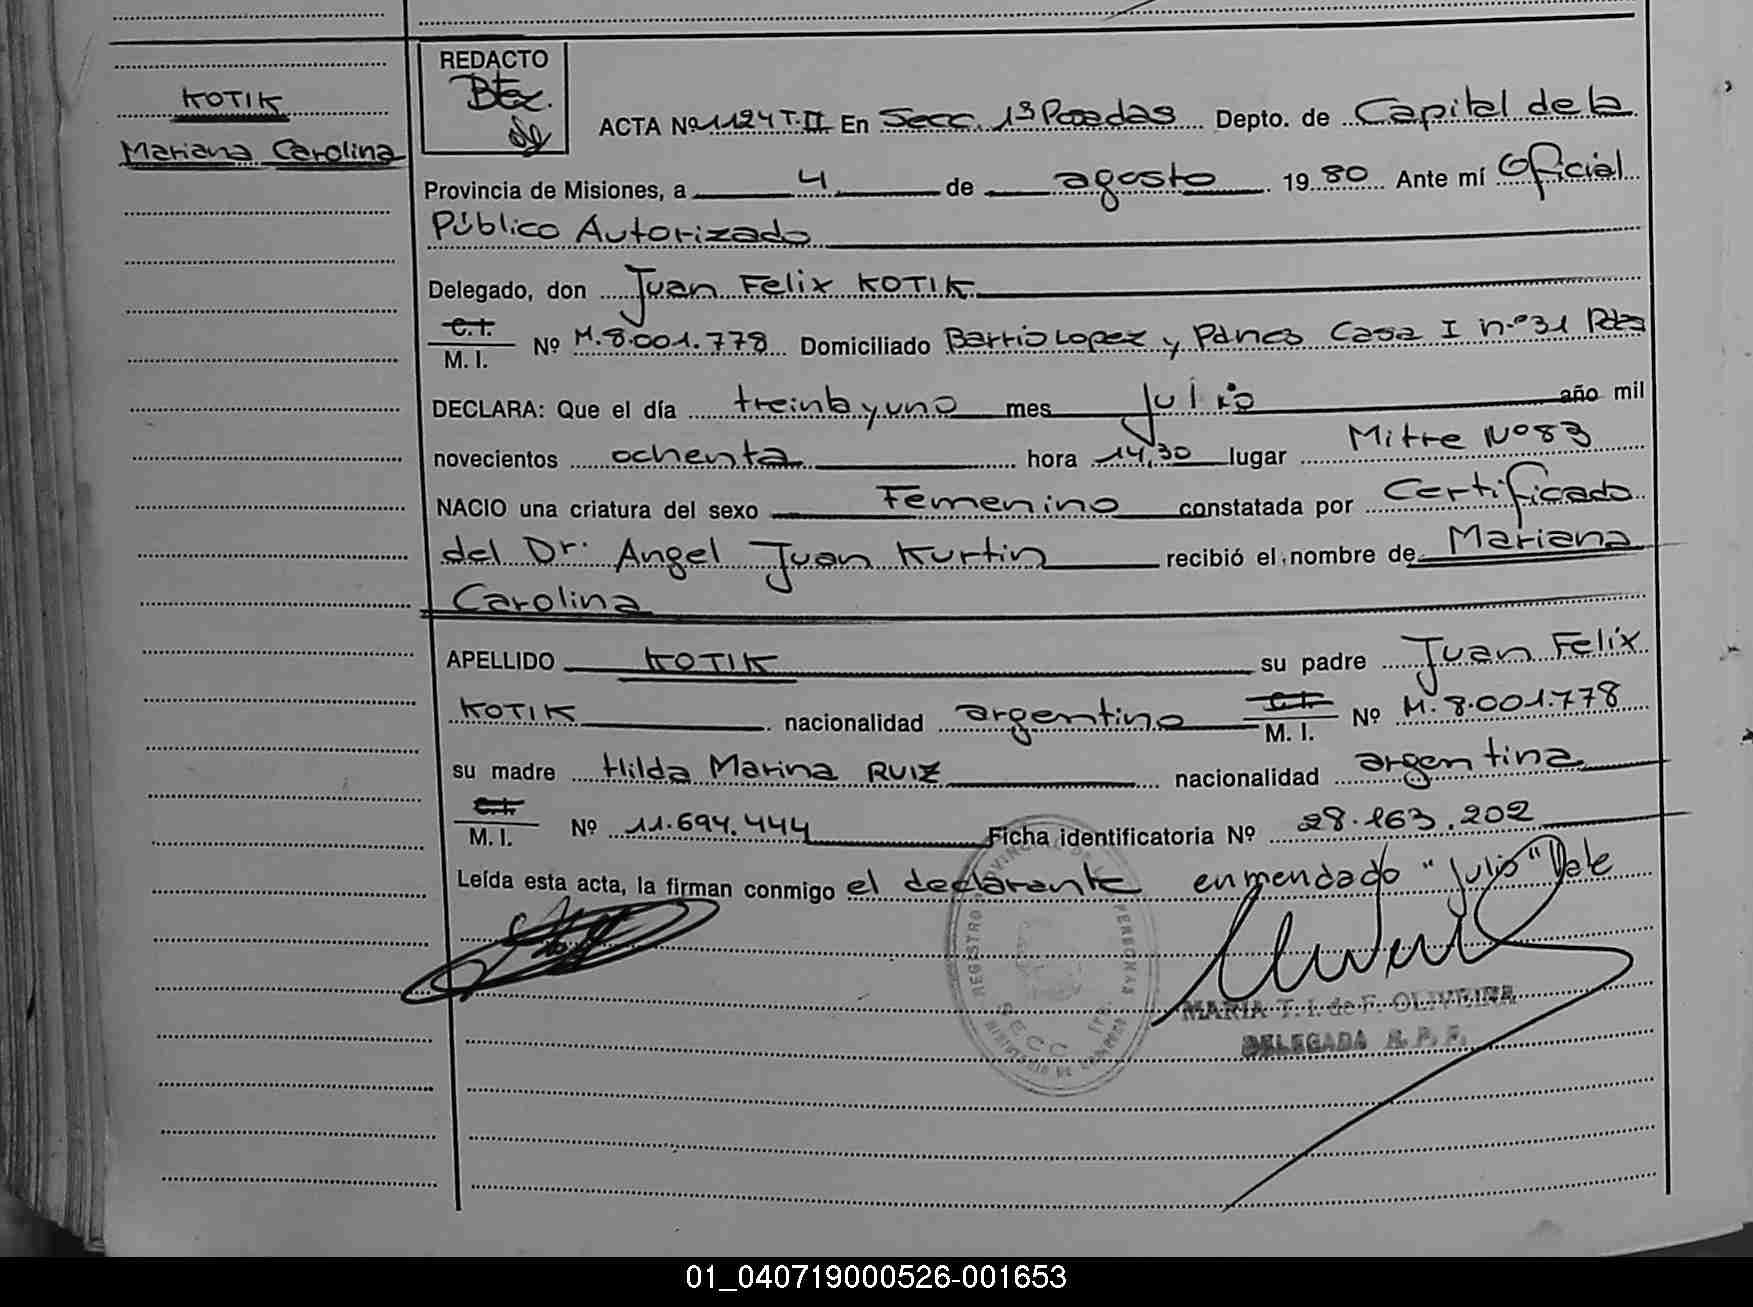 KOTIK
Mariana Carolina
REDACTO
ACTA Nº 1124 T.II En Secc. 1ª Posadas Depto. de Capital de la
Provincia de Misiones, a 4 de agosto 1980 Ante mí Oficial
Público Autorizado
Delegado, don Juan Felix KOTIK
C.I.
M. I. Nº M.8.001.778 Domiciliado Barrio Lopez y Planes Casa I n.º 31 Pdas
DECLARA: Que el día treinta y uno mes julio año mil
novecientos ochenta hora 14,30 lugar Mitre Nº 83
NACIO una criatura del sexo Femenino constatada por Certificado
del Dr. Angel Juan Kurtin recibió el nombre de Mariana
Carolina
APELLIDO KOTIK su padre Juan Felix
KOTIK nacionalidad argentino C.I. M. I. Nº M.8.001.778
su madre Hilda Marina RUIZ nacionalidad argentina
C.I.
M. I. Nº 11.694.444 Ficha identificatoria Nº 28.163.202
Leída esta acta, la firman conmigo el declarante enmendado "julio" Vale
REGISTRO PROVINCIAL DE LAS PERSONAS
SECC. 1ra.
MINISTERIO DE GOBIERNO
MARIA T. I. de F. OLIVEIRA
DELEGADA R. P. P.
01_040719000526-001653